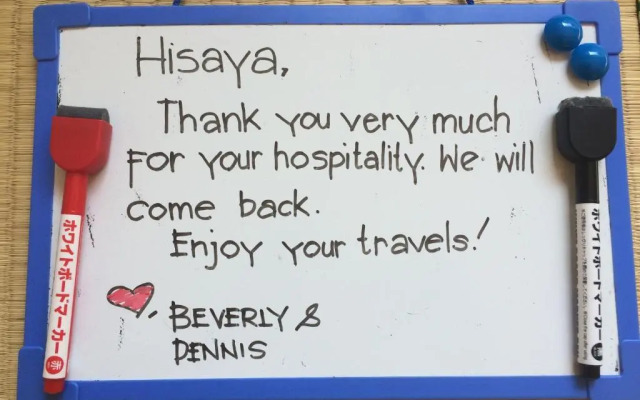 Hisaya,
Thank you very much
for your hospitality. We will
come back.
Enjoy your travels!
BEVERLY &
DENNIS
ホワイトボードマーカー 赤
ホワイトボードマーカー